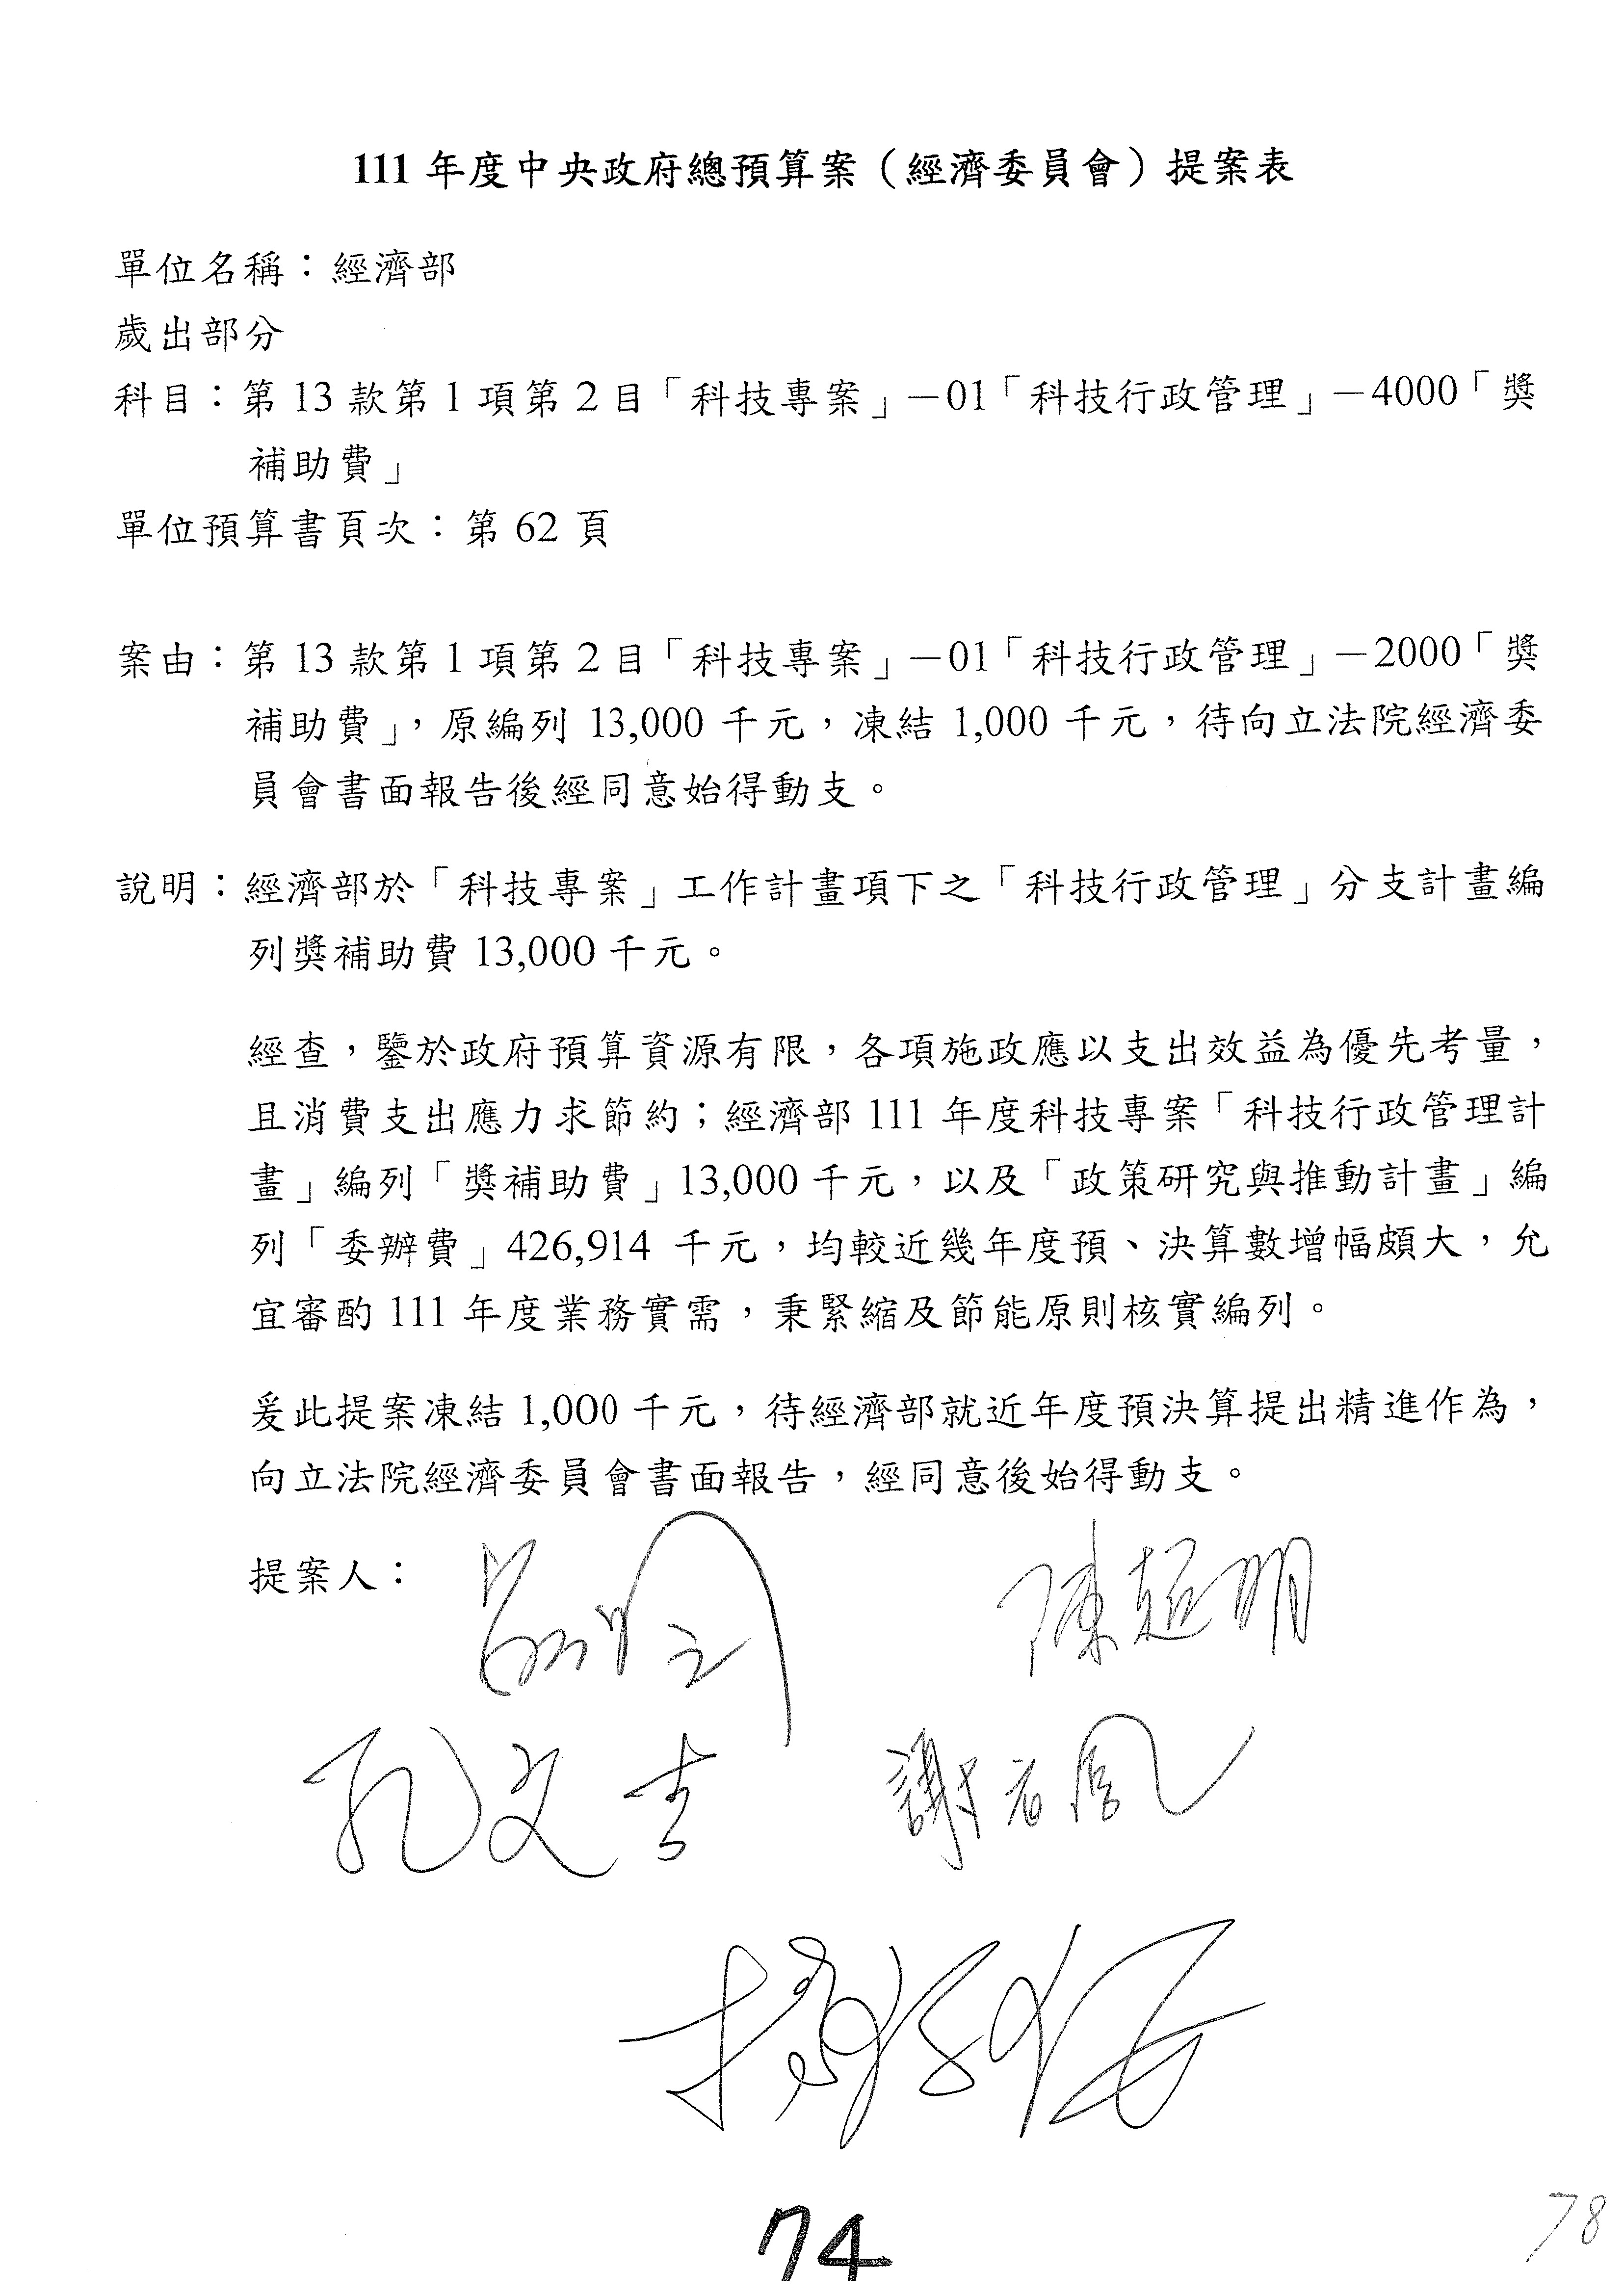 111 年度中央政府總預算案（經濟委員會）提案表
單位名稱：經濟部
歲出部分
科目：第 13 款第 1 項第 2 目「科技專案」－01「科技行政管理」－4000「獎
補助費」
單位預算書頁次：第 62 頁
案由：第 13 款第 1 項第 2 目「科技專案」－01「科技行政管理」－2000「獎
補助費」，原編列 13,000 千元，凍結 1,000 千元，待向立法院經濟委
員會書面報告後經同意始得動支。
說明：經濟部於「科技專案」工作計畫項下之「科技行政管理」分支計畫編
列獎補助費 13,000 千元。
經查，鑒於政府預算資源有限，各項施政應以支出效益為優先考量，
且消費支出應力求節約；經濟部 111 年度科技專案「科技行政管理計
畫」編列「獎補助費」13,000 千元，以及「政策研究與推動計畫」編
列「委辦費」426,914 千元，均較近幾年度預、決算數增幅頗大，允
宜審酌 111 年度業務實需，秉緊縮及節能原則核實編列。
爰此提案凍結 1,000 千元，待經濟部就近年度預決算提出精進作為，
向立法院經濟委員會書面報告，經同意後始得動支。
提案人：
陳超明
孔文吉
74
78